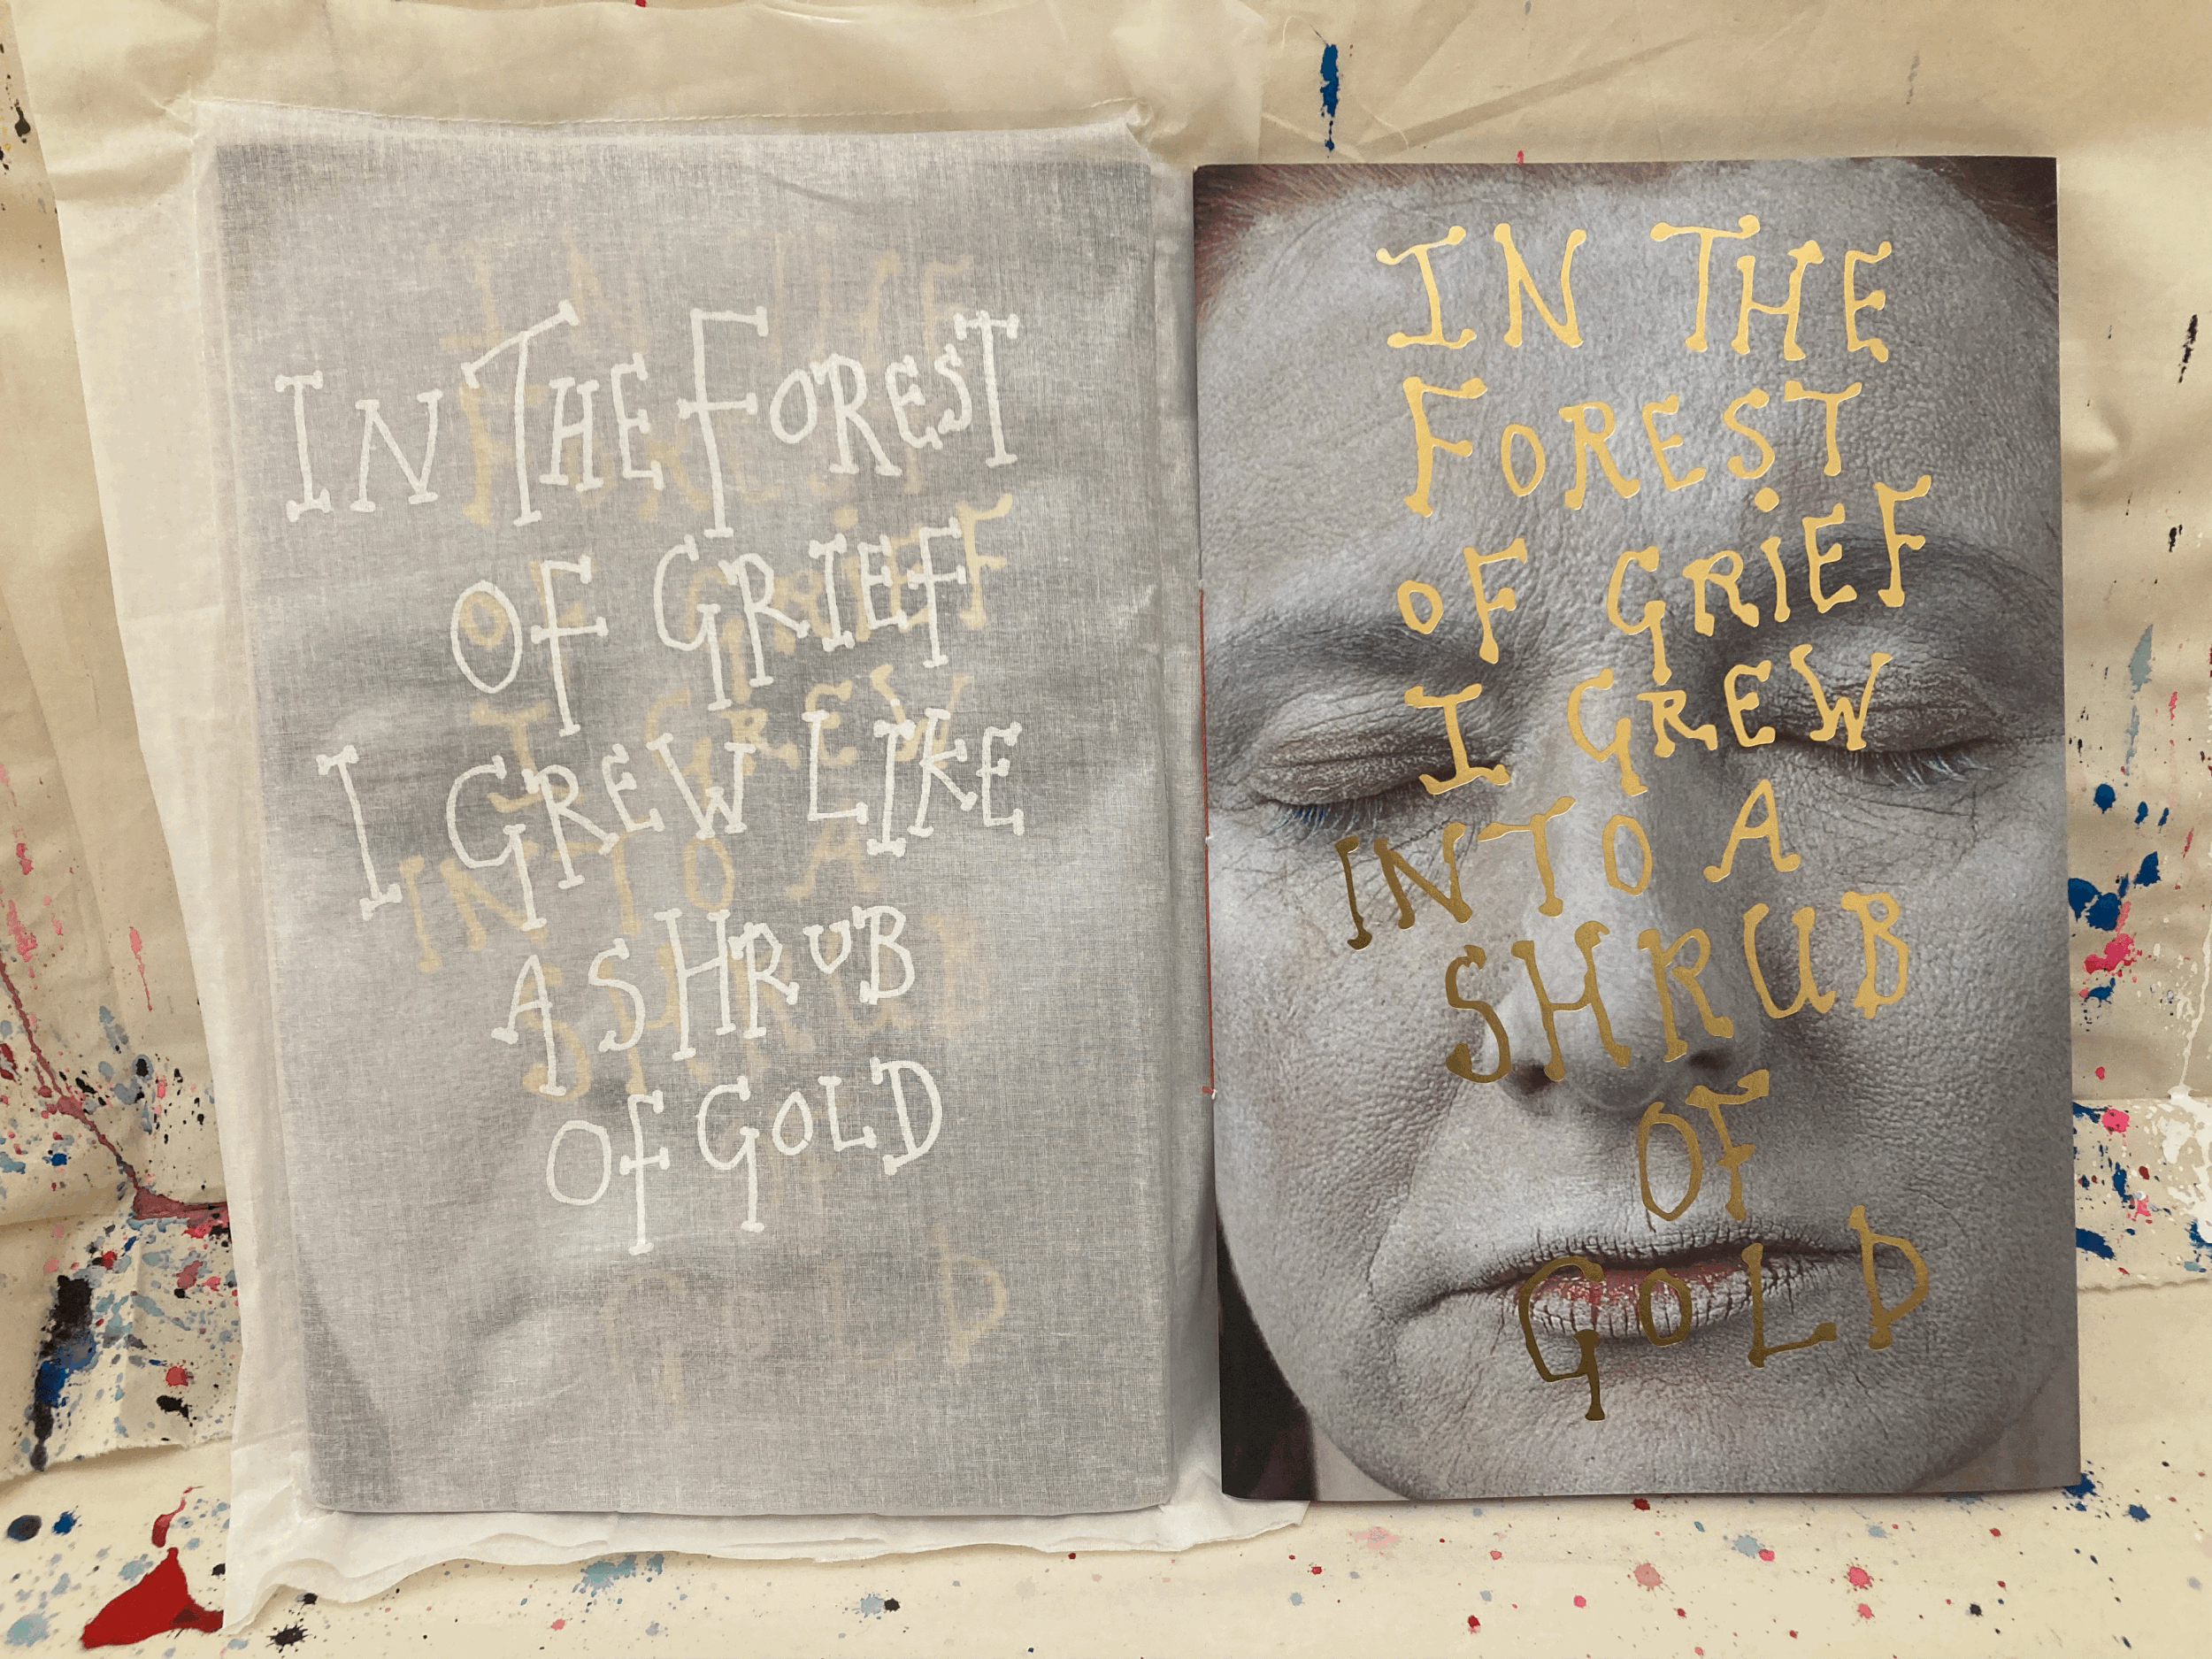 IN THE FOREST
OF GRIEF
I GREW LIKE
A SHRUB
OF GOLD
IN THE
FOREST
OF GRiEF
I GREW
INTO A
SHRUB
OF
GOLD